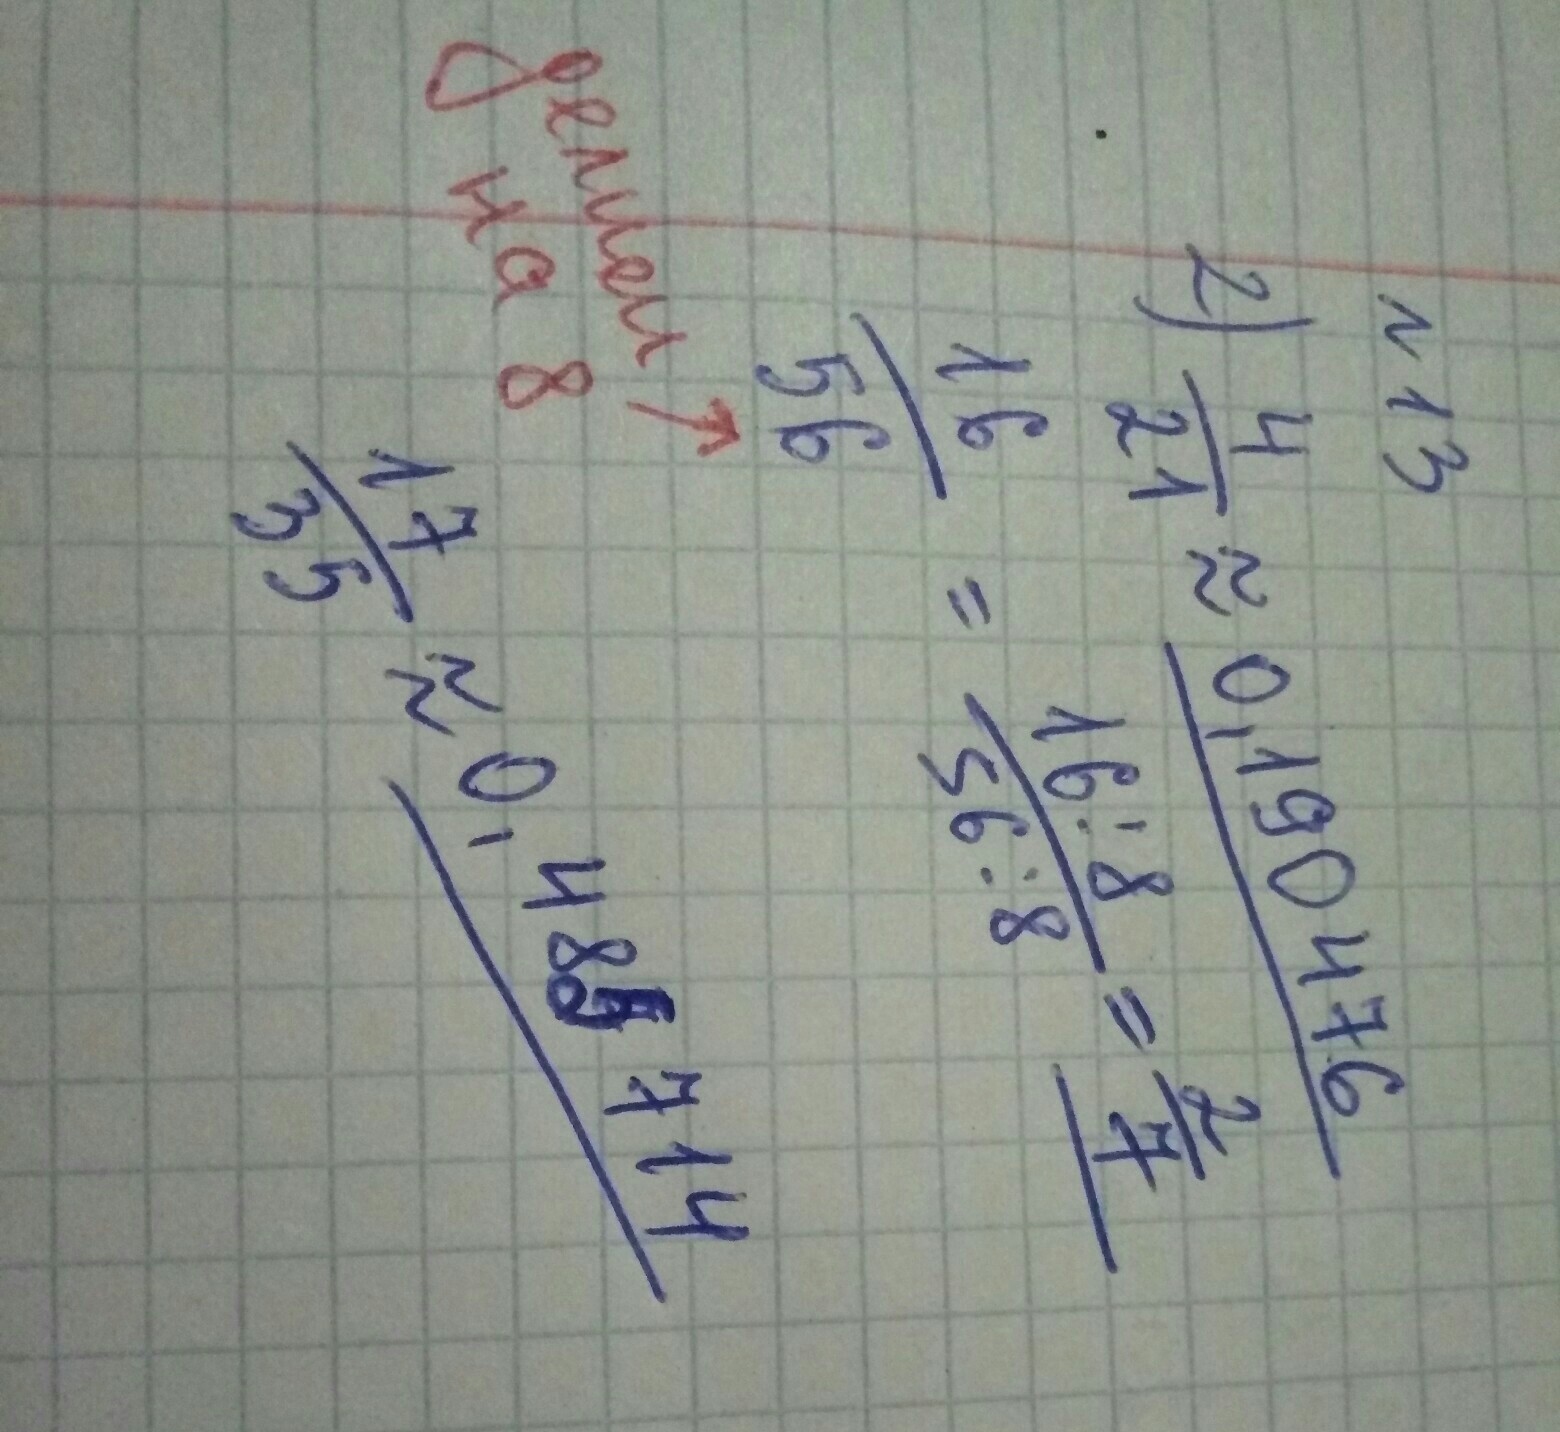 N 13
2) 4/21 ≈ 0,190476
16/56 = 16:8/56:8 = 2/7
делим → 
на 8
17/35 ≈ 0,485714